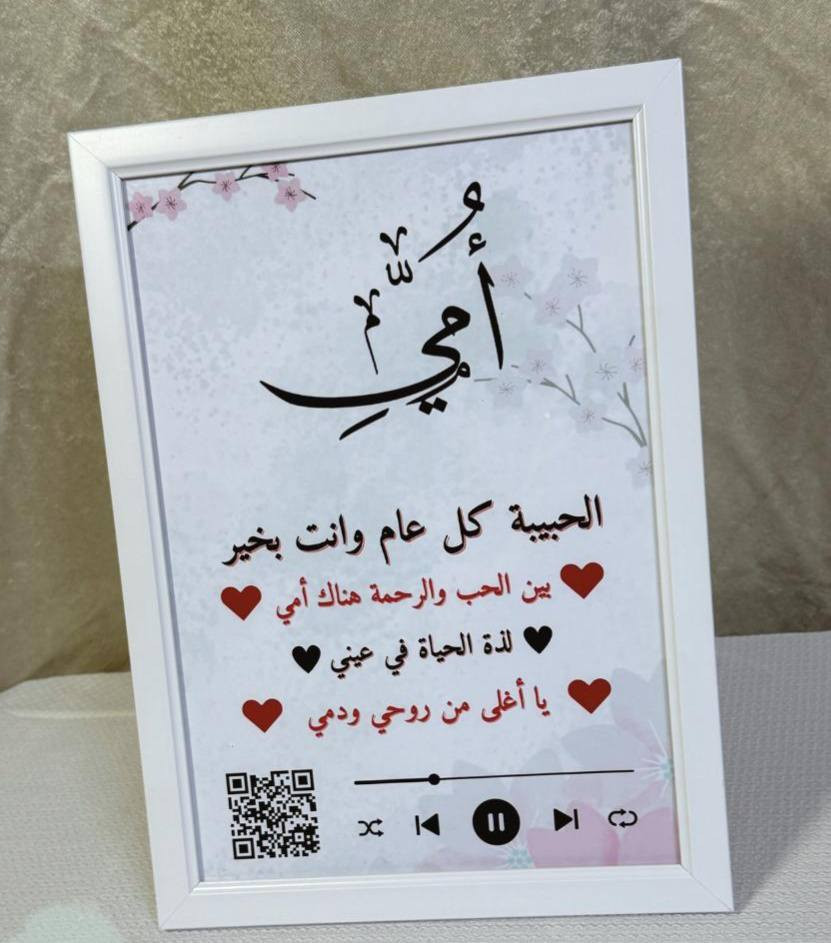 أُمّي
الحبيبة كل عام وانت بخير
بين الحب والرحمة هناك أمي
لذة الحياة في عيني
يا أغلى من روحي ودمي